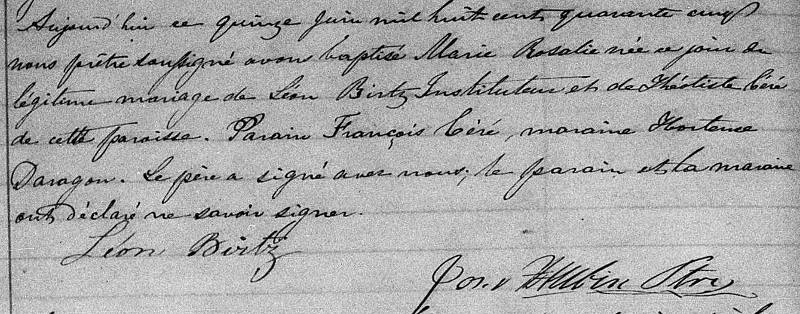 Aujourd'hui ce quinze Juin mil huit cent quarante cinq
nous prêtre soussigné avons baptisé Marie Rosalie née ce jour du
légitime mariage de Léon Birtz Instituteur et de Théotiste Céré
de cette paroisse. Parain François Céré, maraine Hortense
Daragon. Le père a signé avec nous; le parain et la maraine
ont déclaré ne savoir signer.
Léon Birtz
Ptre